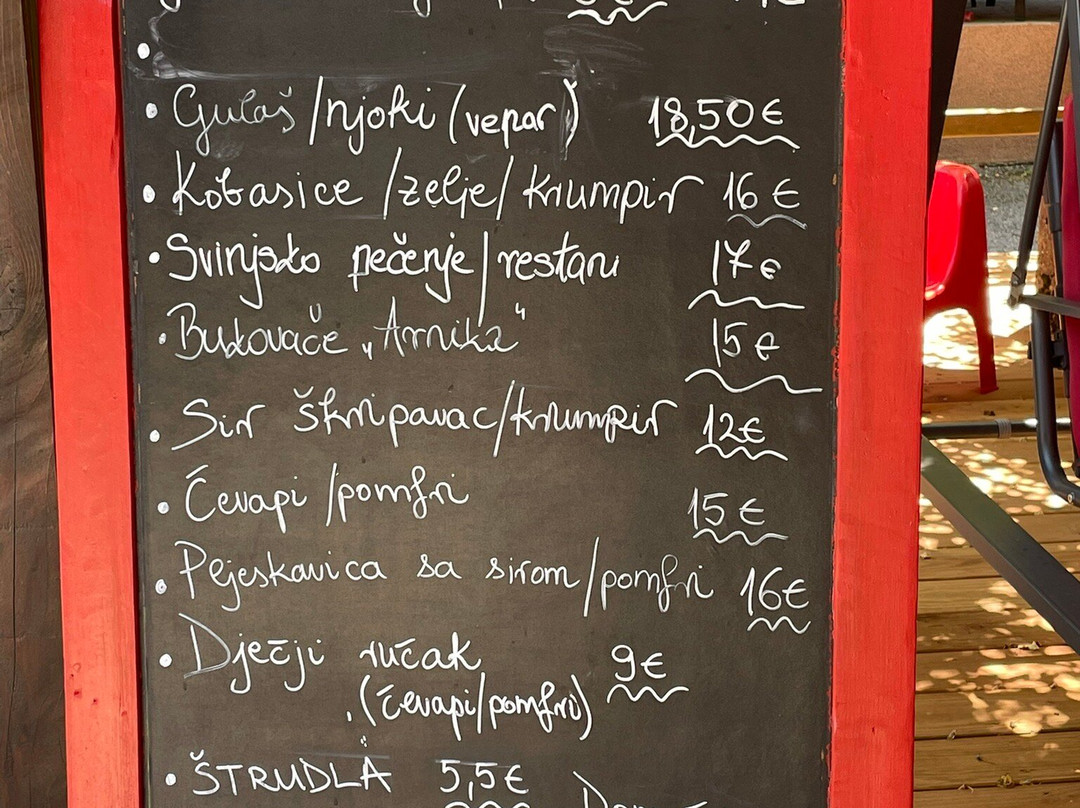 • Gulaš /njoki (vepar) 18,50 €
• Kobasice /zelje/ krumpir 16 €
• Svinjsko pečenje/restani 17 €
• Buhtovače „Arnika“ 15 €
• Sir škripavac/krumpir 12 €
• Čevapi /pomfri 15 €
• Pljeskavica sa sirom/pomfri 16 €
• Dječji ručak 9 €
(čevapi/pomfri)
• ŠTRUDLA 5,5 €